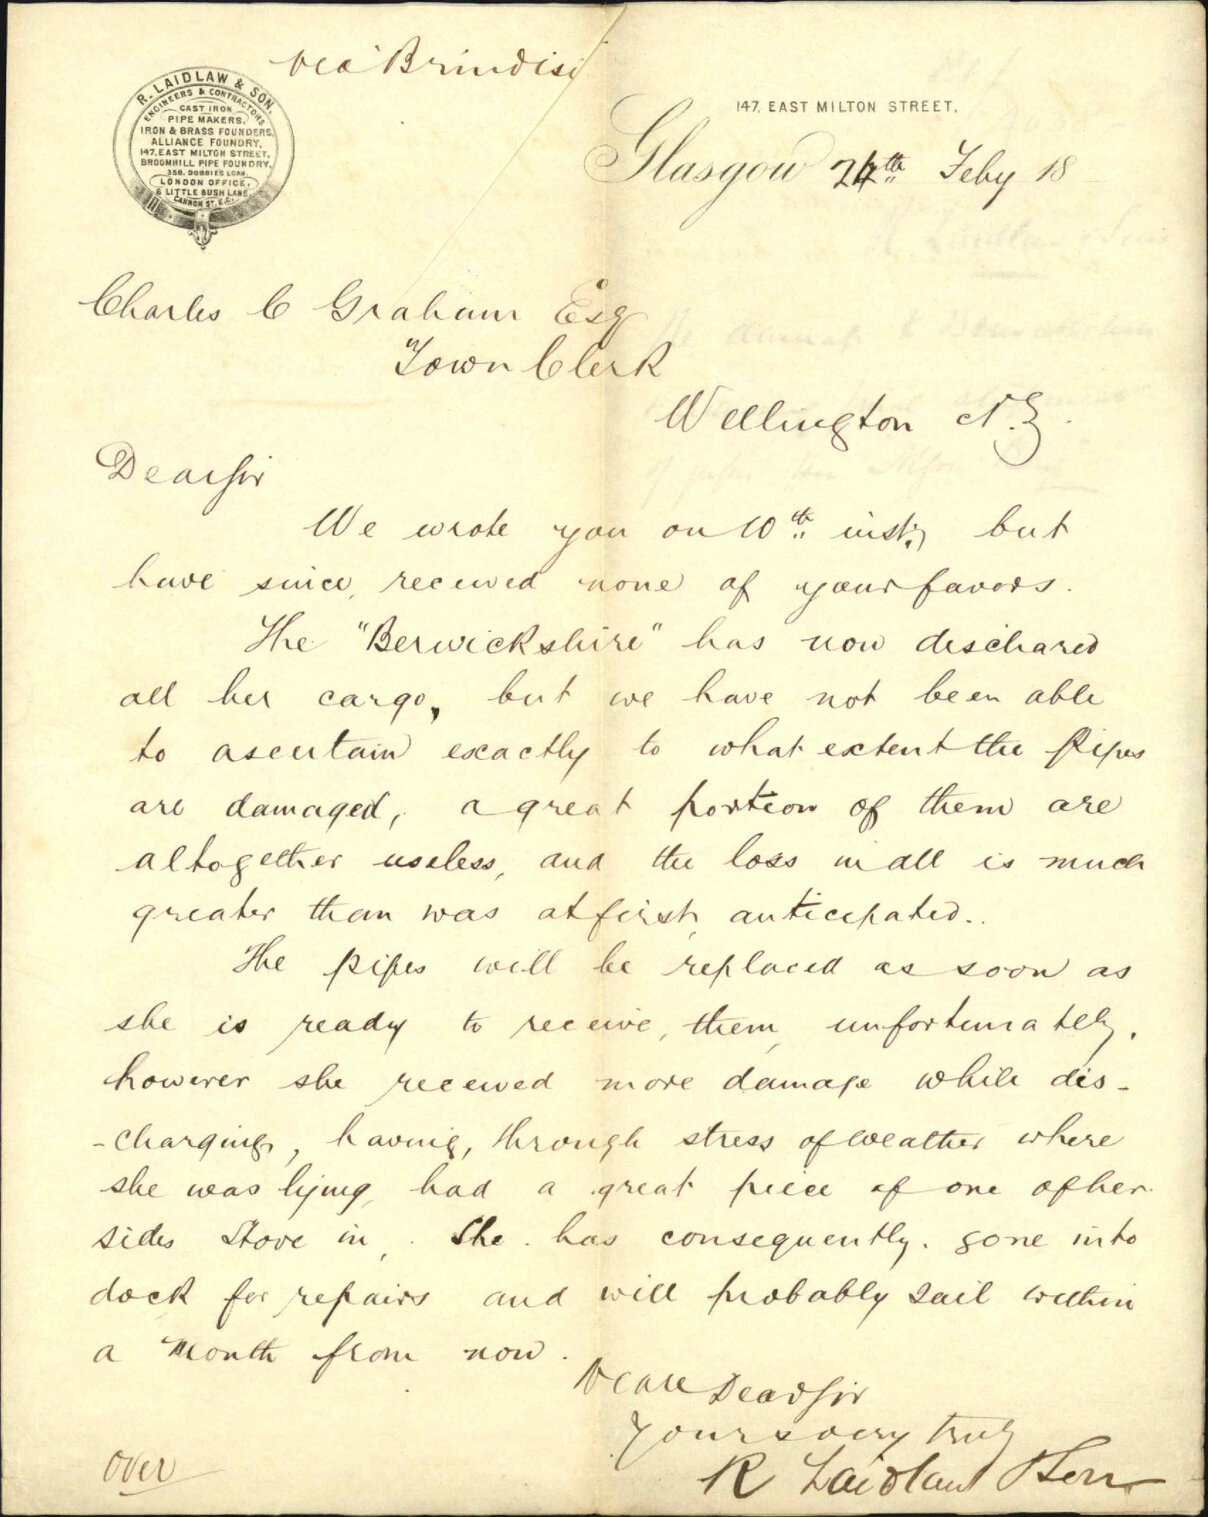 via Brindisi
R. LAIDLAW & SON,
ENGINEERS & CONTRACTORS
CAST IRON
PIPE MAKERS,
IRON & BRASS FOUNDERS,
ALLIANCE FOUNDRY,
147, EAST MILTON STREET,
BROOMHILL PIPE FOUNDRY,
358, DOBBIES LOAN,
LONDON OFFICE,
6 LITTLE BUSH LANE,
CANNON ST. E.C.
147, EAST MILTON STREET,
Glasgow 24th Feby 18
Charles C Graham Esq
Town Clerk
Wellington N.Z.
Dear Sir
We wrote you on 10th inst, but
have since, received none of your favors.
The "Berwickshire" has now discharged
all her cargo, but we have not been able
to ascertain exactly to what extent the Pipes
are damaged, a great portion of them are
altogether useless, and the loss in all is much
greater than was at first, anticipated..
The pipes will be replaced as soon as
she is ready to receive, them, unfortunately,
however she received more damage while dis-
-charging, having, through stress of weather where
she was lying, had a great piece of one of her
sides stove in,. She has consequently. gone into
dock for repairs and will probably sail within
a month from now.
We are Dear Sir
Yours very truly
R Laidlaw & Son
over